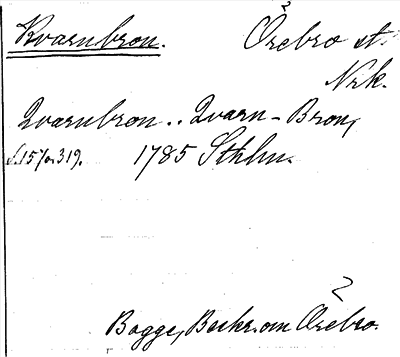 Kvarnbron. Örebro st.
Nrk.
Qvarnbron .. Qvarn-Bron,
s. 157 o. 319. 1785 Sthlm.
Bagge, Beskr. om Örebro.